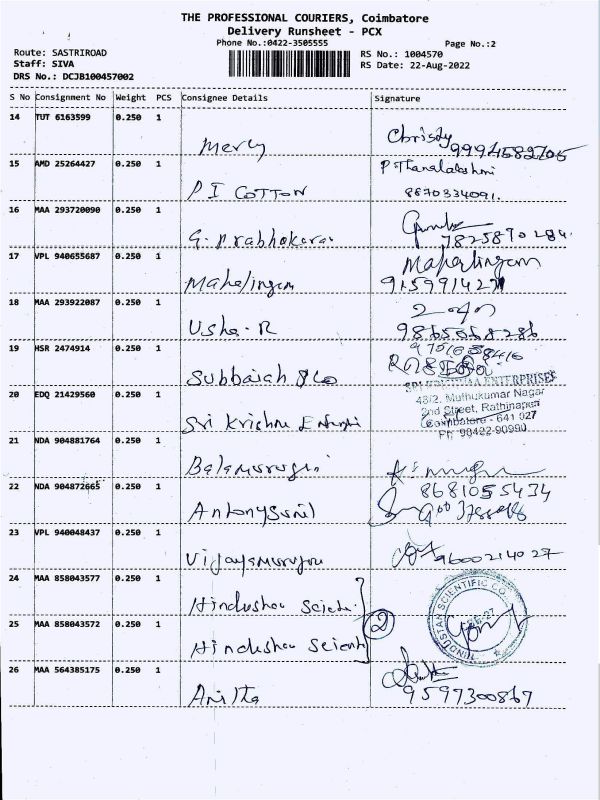 THE PROFESSIONAL COURIERS, Coimbatore
Delivery Runsheet - PCX
Phone No.:0422-3505555
Page No.:2
Route: SASTRIROAD
RS No.: 1004570
Staff: SIVA
RS Date: 22-Aug-2022
DRS No.: DCJB100457002
S No Consignment No Weight PCS Consignee Details Signature
14 TUT 6163599 0.250 1
Mercy Christy
15 AMD 25264427 0.250 1
P I COTTON
8870334091.
16 MAA 293720090 0.250 1
G. Prabhakaran
17 VPL 940655687 0.250 1
Mahalingam Mahalingam
18 MAA 293922087 0.250 1
Usha. R
19 HSR 2474914 0.250 1
Subbaiah & Co
20 EDQ 21429560 0.250 1
Sri Krishna
48/2, Muthukumar Nagar
2nd Street, Rathinapuri
Coimbatore - 641 027
Ph: 98422-90990
21 NDA 904881764 0.250 1
Balamurugan
22 NDA 904872665 0.250 1
8681055434
Antonysunil
23 VPL 940048437 0.250 1
Vijayamurugan 9600214027
24 MAA 858043577 0.250 1
Hindusthan
25 MAA 858043572 0.250 1
2
Hindusthan
HINDUSTAN SCIENTIFIC CO.
26 MAA 564385175 0.250 1
Anitha 9597300867